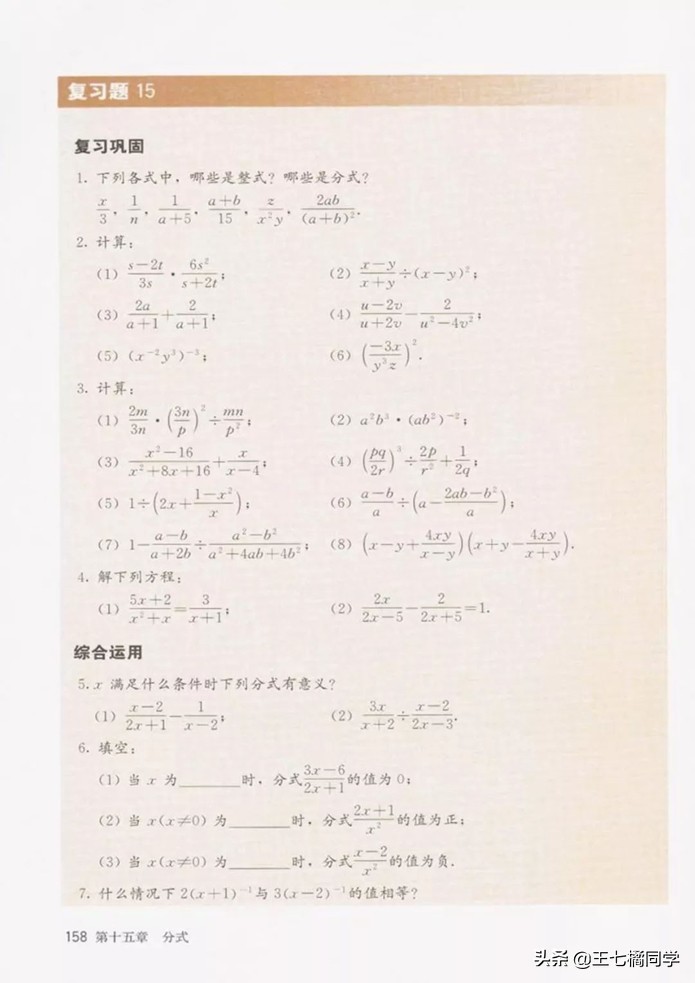 复习题 15
复习巩固
1. 下列各式中，哪些是整式？哪些是分式？
x/3，1/n，1/(a+5)，(a+b)/15，z/(x²y)，2ab/(a+b)².
2. 计算：
(1) (s−2t)/(3s) · 6s²/(s+2t)； (2) (x−y)/(x+y) ÷ (x−y)²；
(3) 2a/(a+1) + 2/(a+1)； (4) (u−2v)/(u+2v) − 2/(u²−4v²)；
(5) (x⁻²y³)⁻³； (6) ((−3x)/(y³z))².
3. 计算：
(1) 2m/3n · (3n/p)² ÷ mn/p²； (2) a²b³ · (ab²)⁻²；
(3) (x²−16)/(x²+8x+16) + x/(x−4)； (4) (pq/2r)³ ÷ 2p/r² + 1/2q；
(5) 1÷(2x + (1−x²)/x)； (6) (a−b)/a ÷ (a − (2ab−b²)/a)；
(7) 1 − (a−b)/(a+2b) ÷ (a²−b²)/(a²+4ab+4b²)； (8) (x−y + 4xy/(x−y))(x+y − 4xy/(x+y)).
4. 解下列方程：
(1) (5x+2)/(x²+x) = 3/(x+1)； (2) 2x/(2x−5) − 2/(2x+5) = 1.
综合运用
5. x 满足什么条件时下列分式有意义？
(1) (x−2)/(2x+1) − 1/(x−2)； (2) 3x/(x+2) ÷ (x−2)/(2x−3).
6. 填空：
(1) 当 x 为______时，分式(3x−6)/(2x+1)的值为 0；
(2) 当 x(x≠0) 为______时，分式(2x+1)/x²的值为正；
(3) 当 x(x≠0) 为______时，分式(x−2)/x²的值为负.
7. 什么情况下 2(x+1)⁻¹与 3(x−2)⁻¹的值相等？
158 第十五章 分式
头条 @王七橘同学